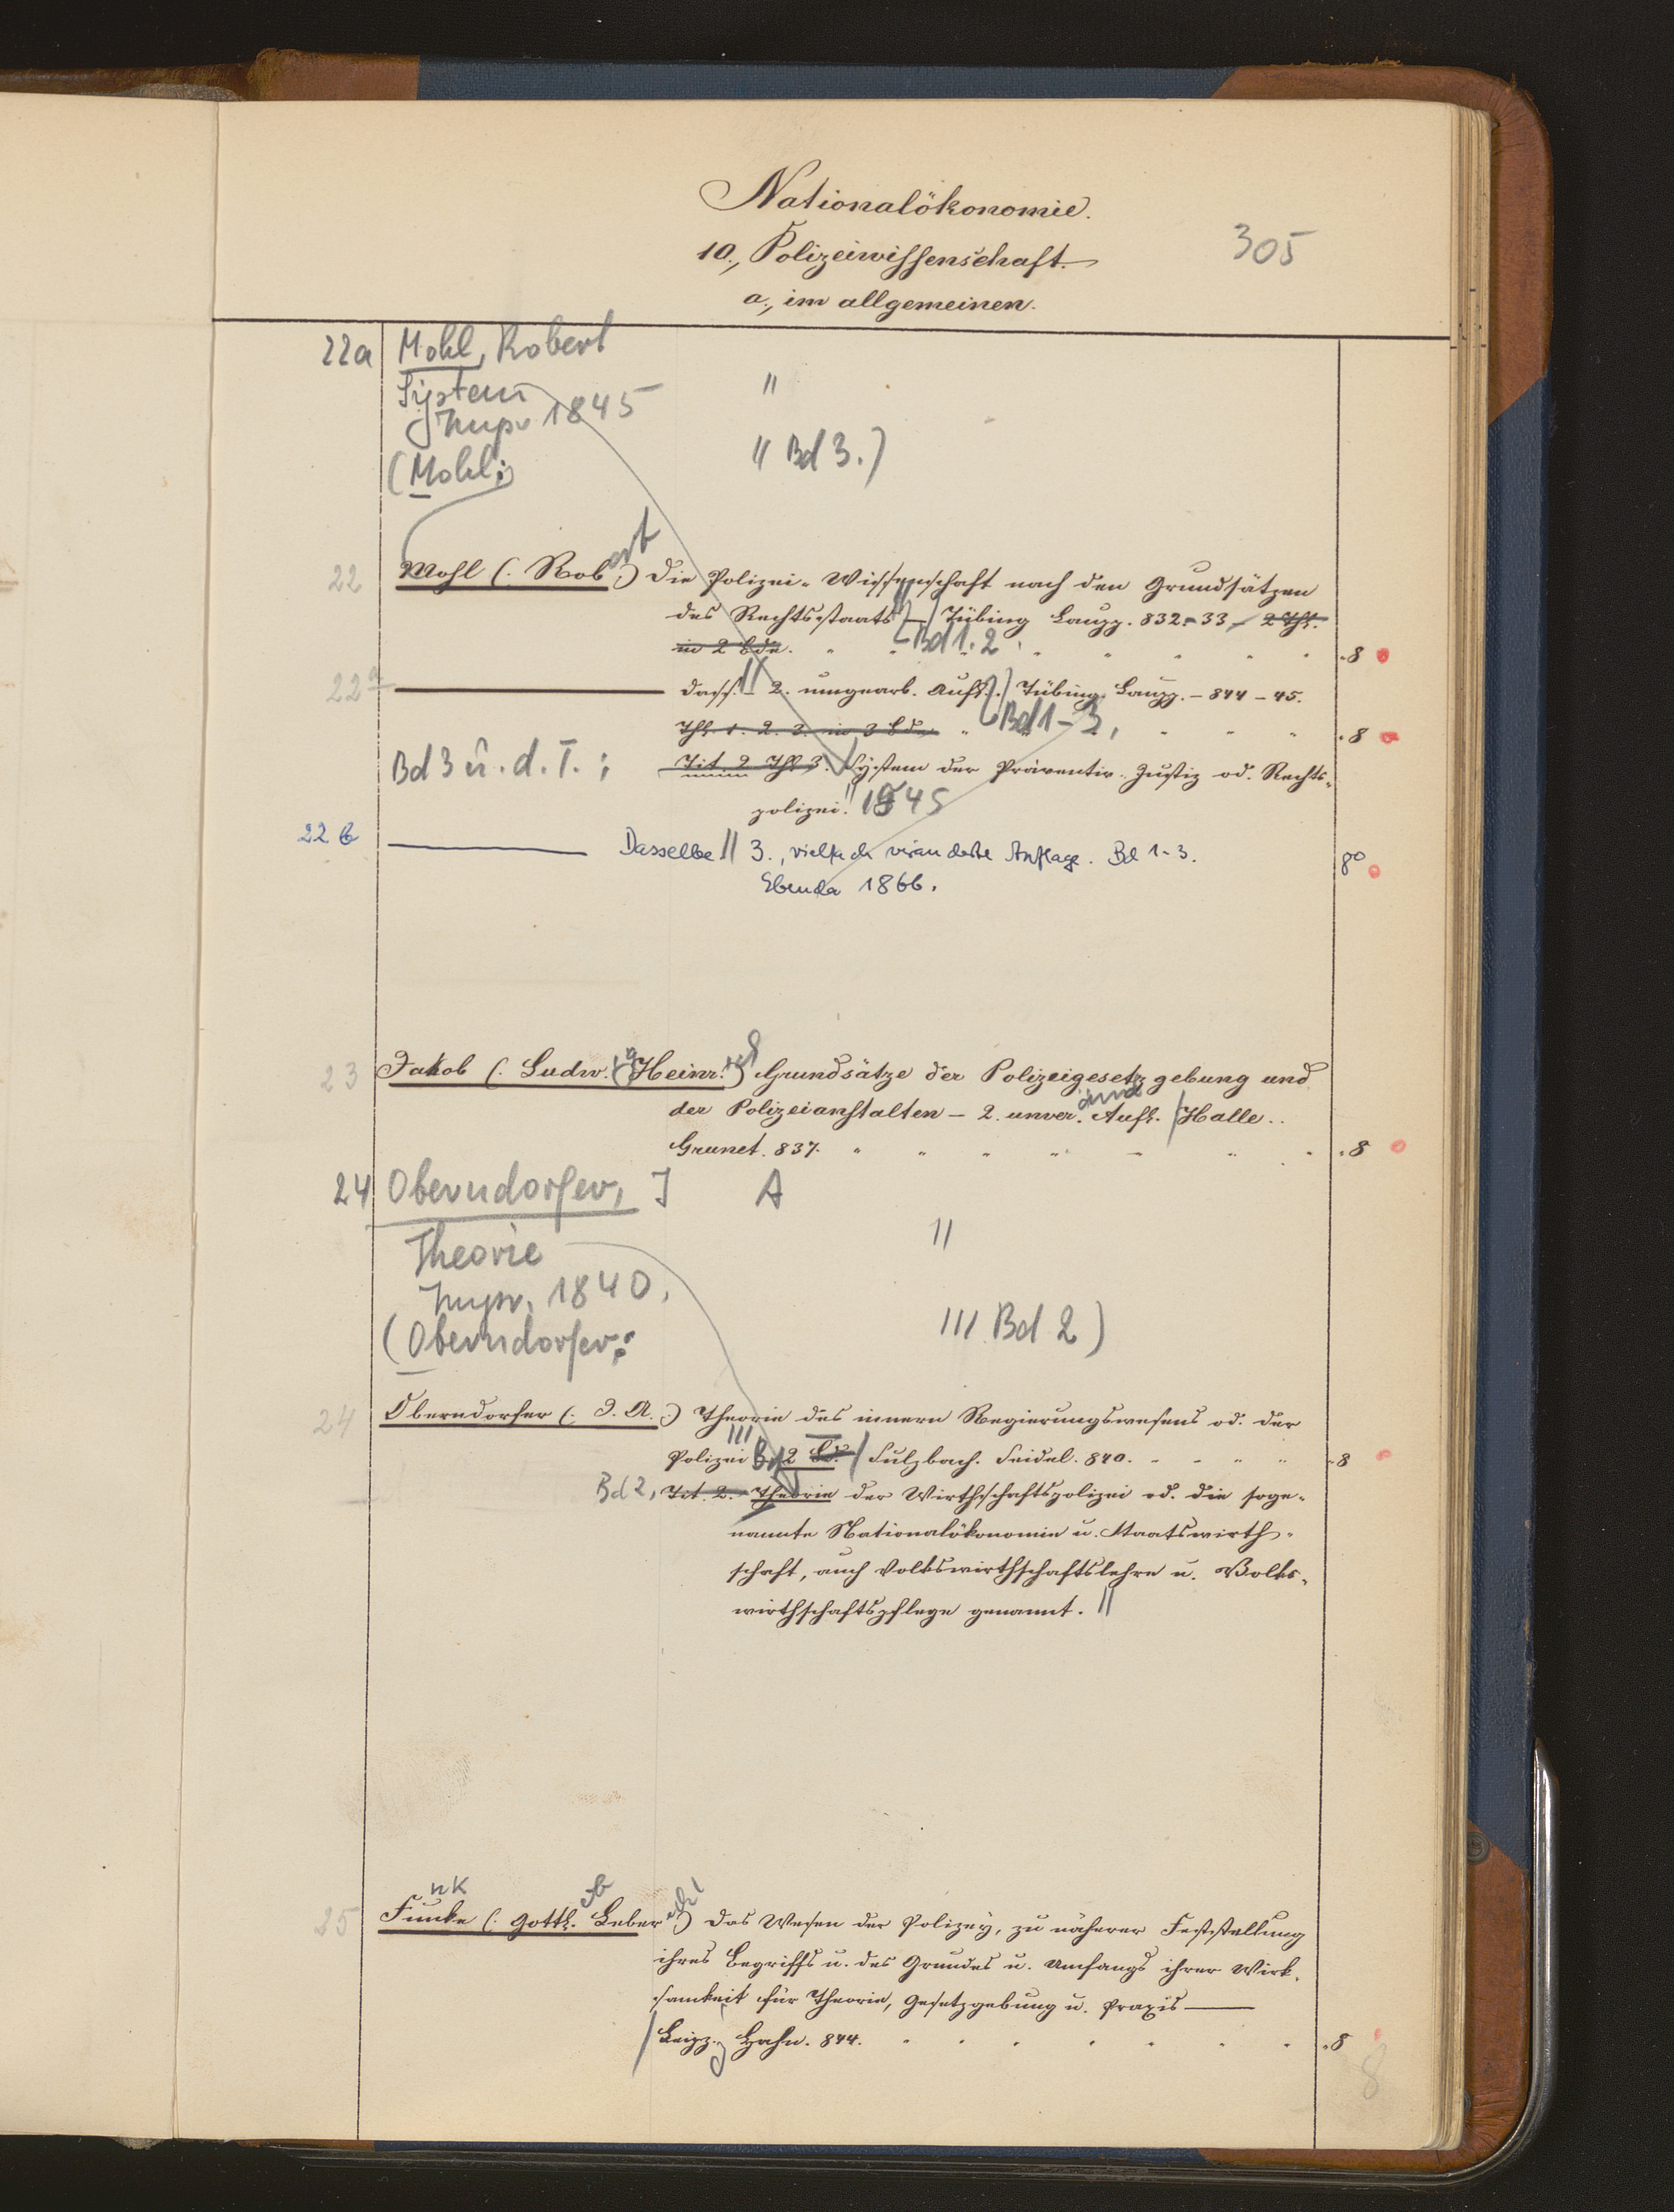 Nationalökonomie.
10., Polizeiwissenschaft.
305
a., im allgemeinen.
22a Mohl, Robert
System "
Impr 1845
(Mohl: " Bd 3.)
22 Mohl (: Robert :) Die Polizei-Wissenschaft nach den Grundsätzen
des Rechtsstaats - Tübing Laupp. 832-33, 2 Thl.
in 2 Bdn. Bd 1.2 8
22a dass. - 2. umgearb. Aufl. Tübing. Laupp. - 844-45.
Thl. 1. 2. 3. in 3 Bdn Bd 1-3, 8
Bd 3 u. d. T.: Tit. 2 Thl 3. System der Präventiv-Justiz od. Rechts-
polizei. " 1845
22 b Dasselbe || 3., vielfach veränderte Auflage. Bd 1-3. 8°
Ebenda 1866.
23 Jakob (: Ludw. Heinr. :) Grundsätze der Polizeigesetzgebung und
der Polizeianstalten - 2. unveränd. Aufl. Halle..
Grunet. 837. 8
24 Oberndorfer, J A
Theorie "
Impr. 1840.
(Oberndorfer: III Bd 2)
24 Oberndorfer (: J. A. :) Theorie des innern Regierungswesens od. der
Polizei Bd 2 Bd. Sulzbach. Seidel. 840. 8
Bd 2, Tit. 2. Theorie der Wirthschaftspolizei od. die soge-
nannte Nationalökonomie u. Staatswirth-
schaft, auch Volkswirthschaftslehre u. Volks-
wirthschaftspflege genannt. ||
25 Funke (: Gotth. Leber :) Das Wesen der Polizey, zu näherer Feststellung
ihres Begriffs u. des Grundes u. Umfangs ihrer Wirk-
samkeit für Theorie, Gesetzgebung u. Praxis
Leipz. Hahn. 844. 8
8